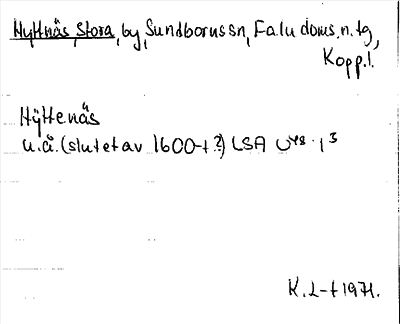 Hyttnäs, Stora, by, Sundborns sn, Falu doms. n. tg,
Kopp. l.
Hÿttenäs
u.å. (slutet av 1600-t?) LSA U48-1³
K. L-t 1971.